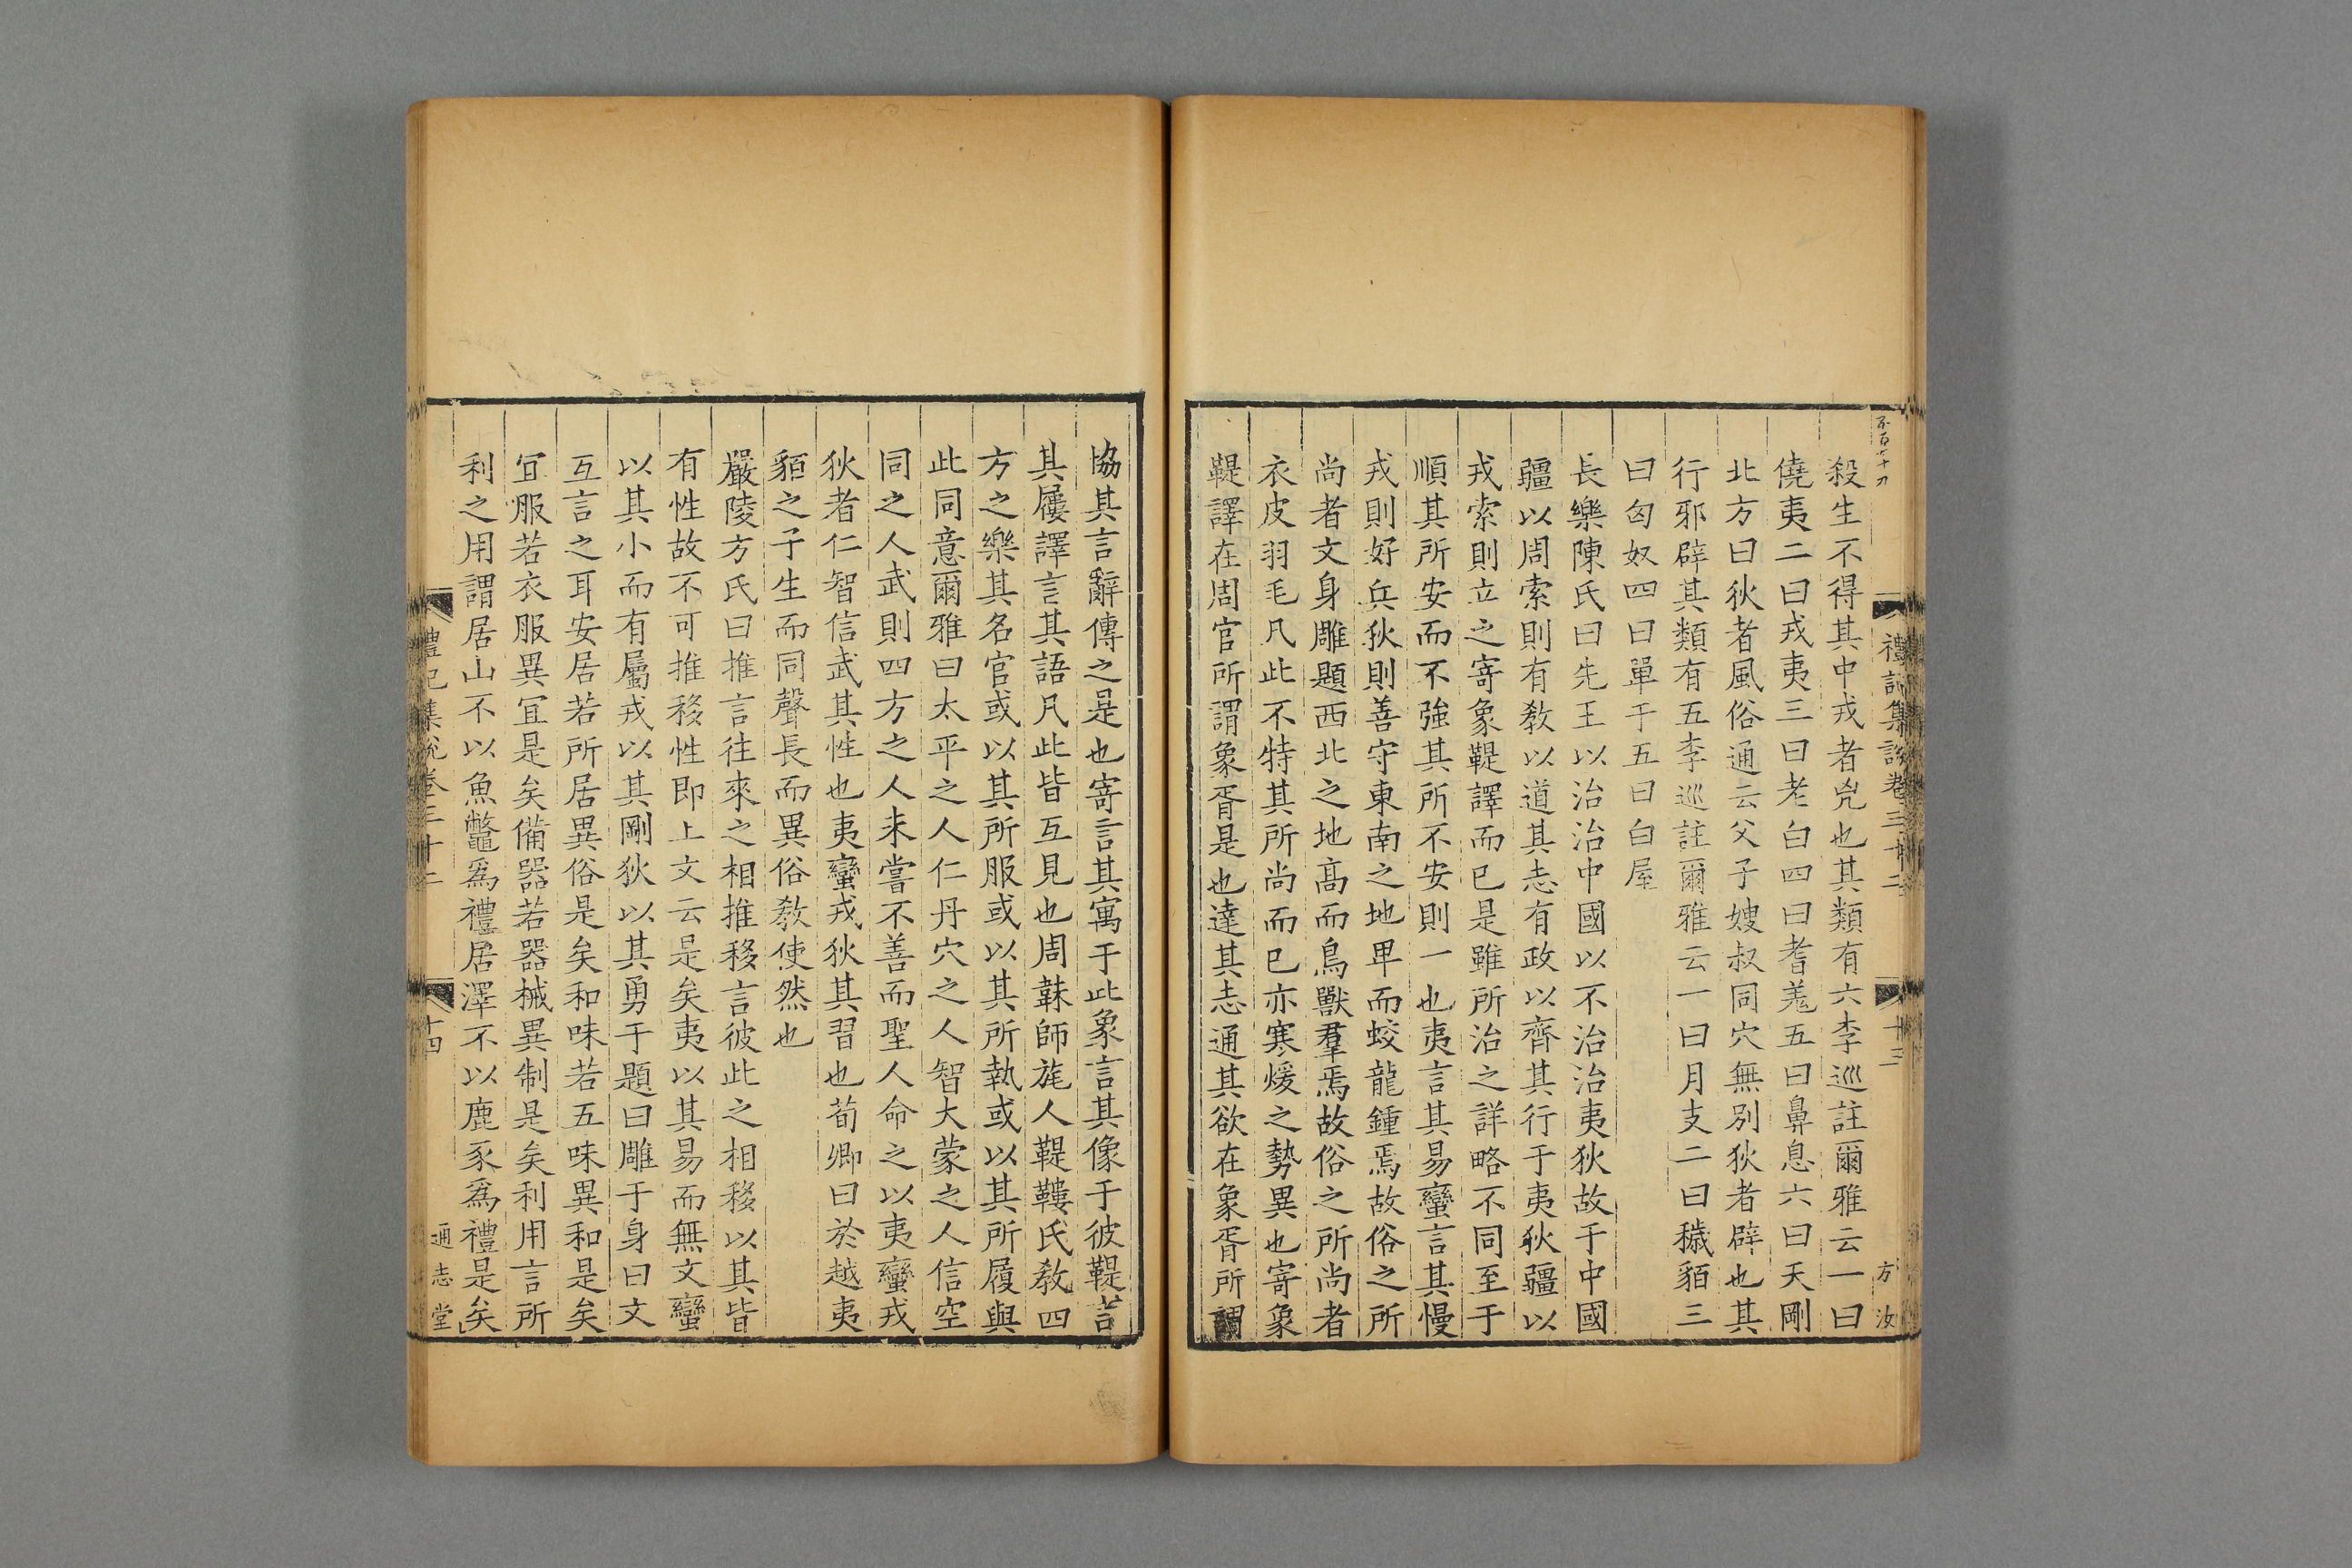 禮記集說卷三十二
十三
方汝
殺生不得其中戎者兇也其類有六李巡註爾雅云一曰
僥夷二曰戎夷三曰老白四曰耆羗五曰鼻息六曰天剛
北方曰狄者風俗通云父子嫂叔同穴無別狄者辟也其
行邪辟其類有五李巡註爾雅云一曰月支二曰穢貊三
曰匈奴四曰單于五曰白屋
長樂陳氏曰先王以治治中國以不治治夷狄故于中國
疆以周索則有敎以道其志有政以齊其行于夷狄疆以
戎索則立之寄象鞮譯而已是雖所治之詳略不同至于
順其所安而不強其所不安則一也夷言其易蠻言其慢
戎則好兵狄則善守東南之地卑而蛟龍鍾焉故俗之所
尚者文身雕題西北之地高而鳥獸羣焉故俗之所尚者
衣皮羽毛凡此不特其所尚而已亦寒煖之勢異也寄象
鞮譯在周官所謂象胥是也達其志通其欲在象胥所謂
協其言辭傳之是也寄言其寓于此象言其像于彼鞮言
其屨譯言其語凡此皆互見也周韎師旄人鞮鞻氏敎四
方之樂其名官或以其所服或以其所執或以其所履與
此同意爾雅曰太平之人仁丹穴之人智大蒙之人信空
同之人武則四方之人未嘗不善而聖人命之以夷蠻戎
狄者仁智信武其性也夷蠻戎狄其習也荀卿曰於越夷
貊之子生而同聲長而異俗敎使然也
嚴陵方氏曰推言往來之相推移言彼此之相移以其皆
有性故不可推移性即上文云是矣夷以其易而無文蠻
以其小而有屬戎以其剛狄以其勇于題曰雕于身曰文
互言之耳安居若所居異俗是矣和味若五味異和是矣
宜服若衣服異宜是矣備器若器械異制是矣利用言所
利之用謂居山不以魚鼈爲禮居澤不以鹿豕爲禮是矣
禮記集說卷三十二
十四
通志堂